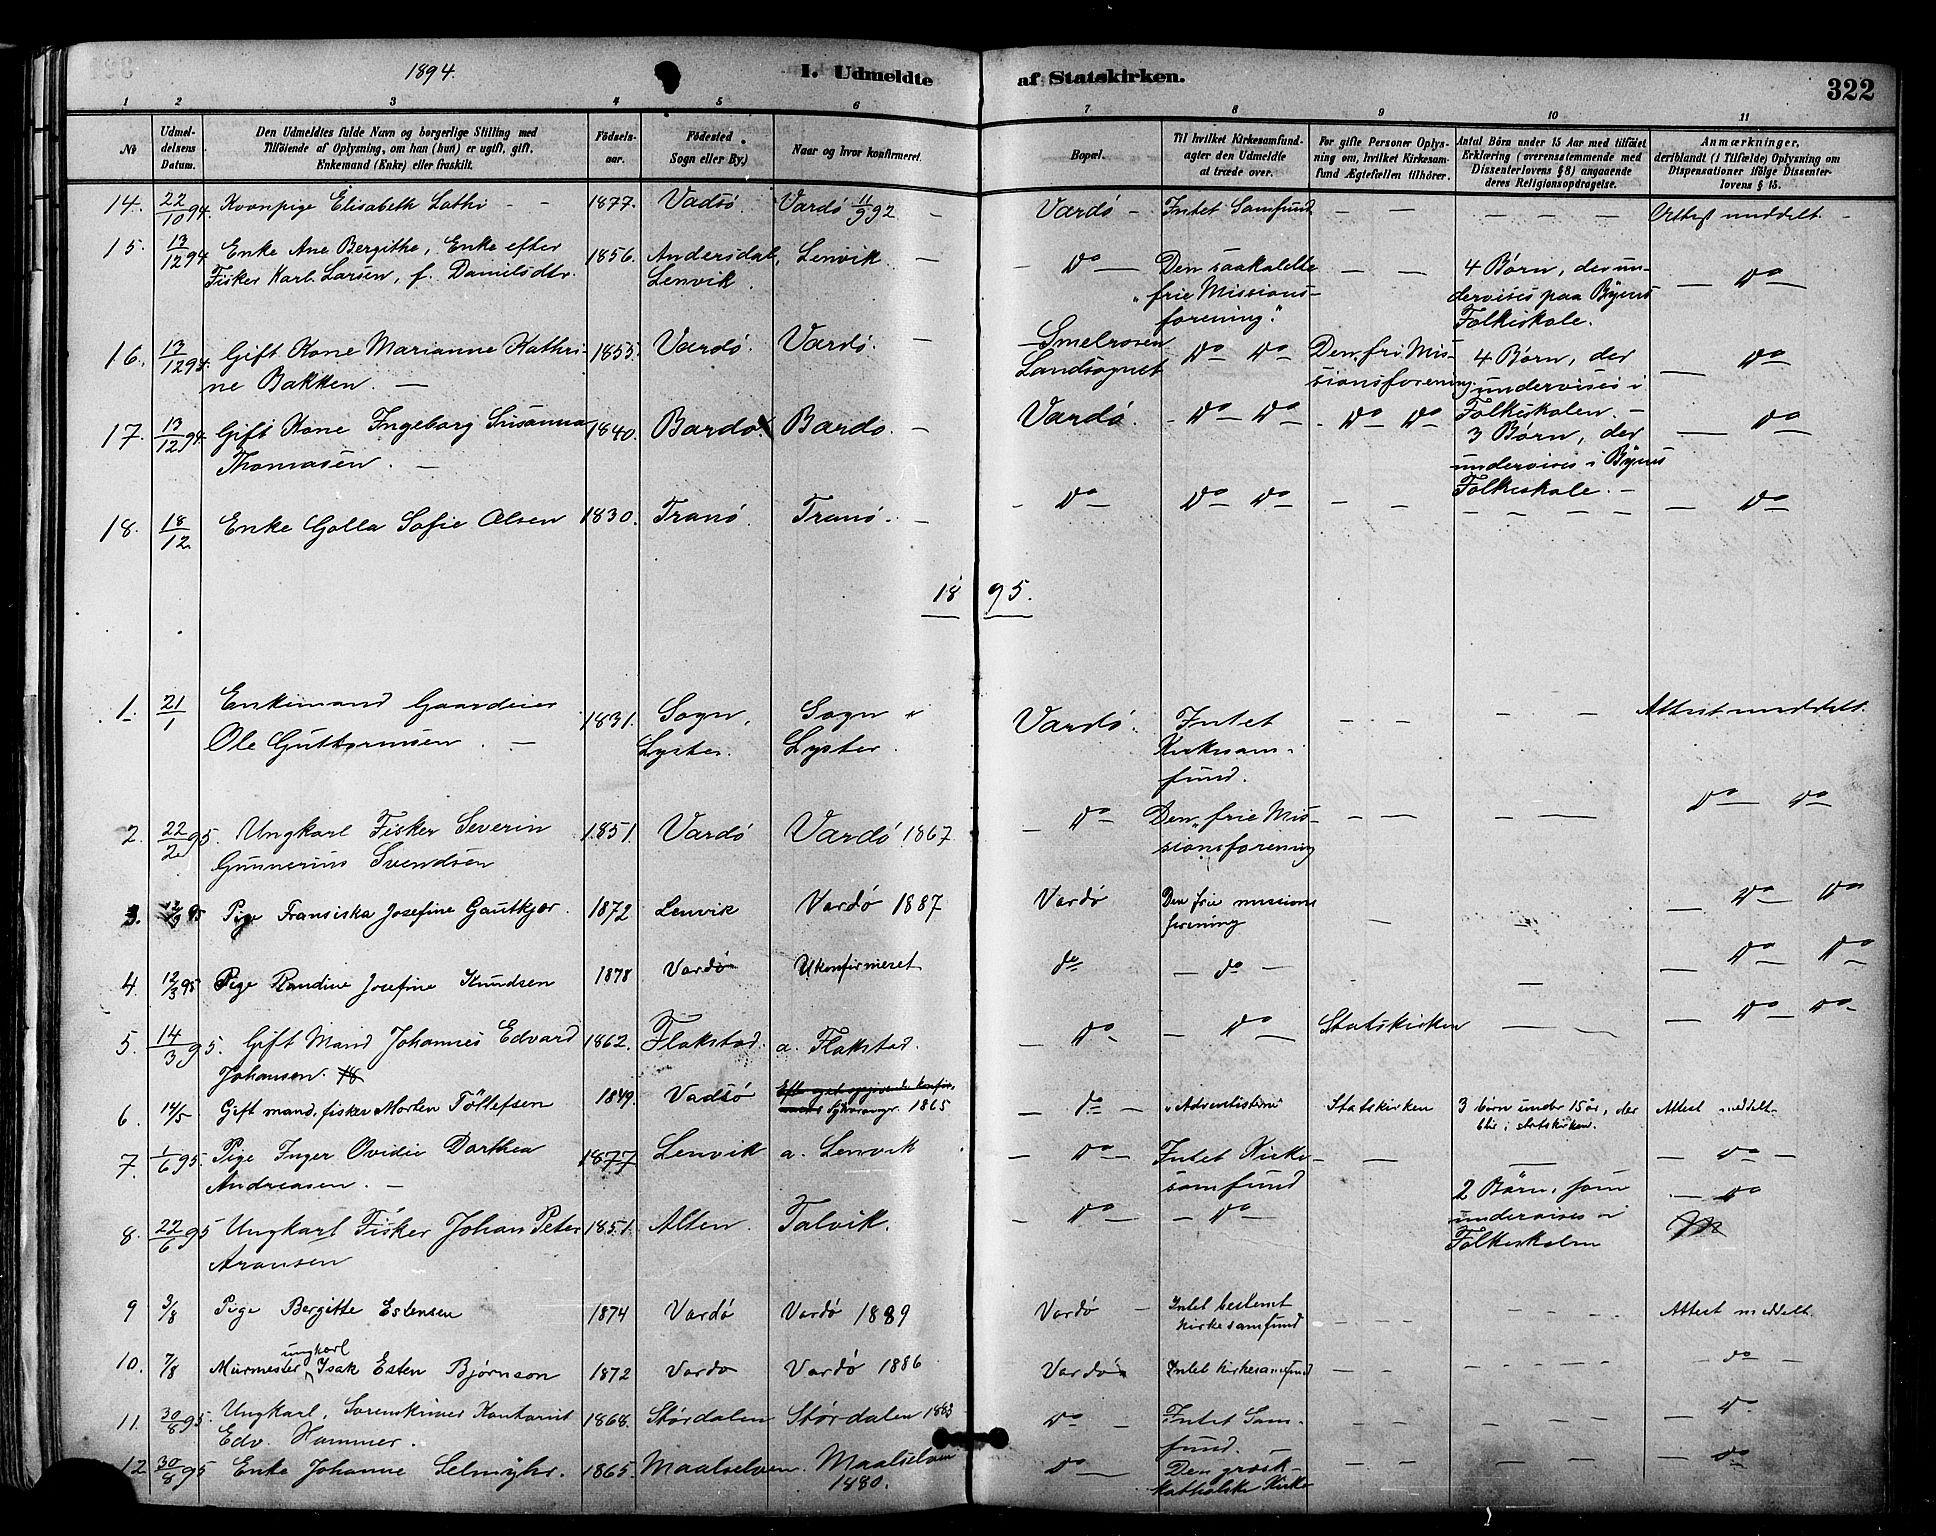 1894.
I. Udmeldte af Statskirken.
322
1 2 3 4 5 6 7 8 9 10 11
No
Udmel-
delsens
Datum.
Den Udmeldtes fulde Navn og borgerlige Stilling med
Tilföiende af Oplysning, om han (hun) er ugift, gift,
Enkemand (Enke) eller fraskilt.
Födsels-
aar.
Födested
Sogn eller By.)
Naar og hvor konfirmeret.
Bopæl.
Til hvilket Kirkesamfund-
agter den Udmeldte
at træde over.
For gifte Personer Oplys-
ning om, hvilket Kirkesam-
fund Ægtefællen tilhörer.
Antal Börn under 15 Aar med tilföiet
Erklæring (overensstemmende med
Dissenterlovens § 8) angaaende
deres Religionsopdragelse.
Anmærkninger,
deriblandt (i Tilfælde) Oplysning om
Dispensationer ifölge Dissenter-
lovens § 15.
14. 22/10 94. Kvænpige Elisabeth Lathi - - 1877. Vadsö Vardö 11/9 92 - Vardö - Intet Samfund - - - - - Attest meddelt -
15. 13/12 94 Enke Ane Bergithe, Enke efter 1856. Andersdal, Lenvik. - - Do - Den saakaldte - - 4 Börn, der un- - Do -
Fisker Karl Larsen, f. Danielsdtr. Lenvik. "frie Missions- dervises paa Byens
forening". Folkeskole.
16. 13/12 94. Gift Kone Marianne Kathri- 1855. Vardö. Vardö. - Smelroren Do Do Den fri Mis- 4 Börn, der - Do
ne Bakken. - Landsognet sionsforening. undervises i
Folkeskolen. -
17. 13/12 94. Gift Kone Ingeborg Susanna 1840. Bardo. Bardo. - Vardö. - Do Do - Do Do 3 Börn, der - Do
Thomasen. - undervises i Byens
Folkeskole. -
18. 18/12 Enke Golla Sofie Olsen 1830. Tranö. Tranö. - - Do Do Do - - - - - - - Do
1895.
1. 21/1 Enkemand Gaardeier 1831. Sogn, Sogn Vardö. Intet - - - - Attest meddelt.
Ole Guttormsen. - Lyster. Lyster. Kirkesam-
fund.
2. 22/2 95. Ungkarl Fisker Severin 1851. Vardö Vardö 1867 - Do Den "frie Mis- - - - - Do Do
Gunnerius Svendsen sionsforening
3. 12/3 95 Pige Fransiska Josefine Gautkjær. 1872 Lenvik Vardö 1887 Vardö Den frie missions - - - Do Do
forening
4. 12/3 95 Pige Randine Josefine Knudsen 1878 Vardö Ukonfirmeret do - do - - - Do Do
5. 14/3 95. Gift Mand Johannes Edvard 1862. Flakstad. a. Flakstad. - Do - - Do Statskirken - - - Do Do
Johansen.
6. 14/5 Gift mand, fisker Morten Töllefsen 1849. Vadsö 1865 - do - "Adventistene" Statskirken 3 börn under 15 år, der Attest meddelt
blir i statskirken.
7. 1/6 95. Pige Inger Ovidie Dorthea 1877 Lenvik a. Lenvik - Do - Intet Kirke- - - - Do -
Andreasen. - samfund
8. 22/6 95 Ungkarl Fisker Johan Peter 1851. Alten. Talvik. - Do - - Do - 2 Börn, som - Do
Aronsen undervises i
Folkeskolen
9 3/8 Pige Bergitte Estensen 1874 Vardö Vardö 1889 Vardö - Intet bestemt - - - - - - Attest meddelt
kirkesamfund
10. 7/8 Murmester ungkarl Isak Esten Bjørnson 1872 Vardö Vardö 1886 Vardö Intet kirkesamfund - - - - - - - do -
11. 30/8 95. Ungkarl, Sorenskriver Kontorist 1868. Stördalen Stördalen 1883 Do - Intet Sam- - - - - - Do
Edv. Hammer. fund.
12 30/8 95 Enke Johanne Selmyhr. 1865. Maalselven. Maalselven Do - Den græsk- - - - - - Do
1880. katholske Kirke